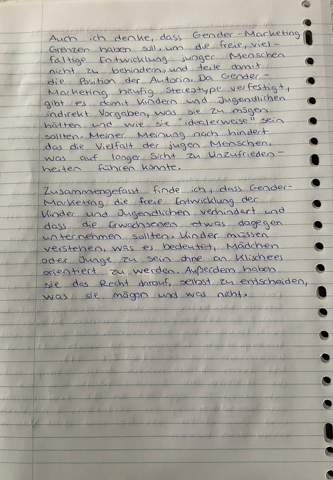 Auch ich denke, dass Gender-Marketing
Grenzen haben soll, um die freie, viel-
fältige Entwicklung junger Menschen
nicht zu behindern, und teile damit
die Position der Autorin. Da Gender-
Marketing häufig Stereotype verfestigt,
gibt es damit Kindern und Jugendlichen
indirekt Vorgaben, was sie zu mögen
hätten und wie sie "idealerweise" sein
sollten. Meiner Meinung nach hindert
das die Vielfalt der jugen Menschen,
was auf langer Sicht zu Unzufrieden-
heiten führen könnte.
Zusammengefasst finde ich, dass Gender-
Marketing die freie Entwicklung der
Kinder und Jugendlichen verhindert und
dass die Erwachsenen etwas dagegen
unternehmen sollten. Kinder müssen
verstehen, was es bedeutet, Mädchen
oder Junge zu sein ohne an Klischees
orientiert zu werden. Außerdem haben
sie das Recht darauf, selbst zu entscheiden,
was sie mögen und was nicht.